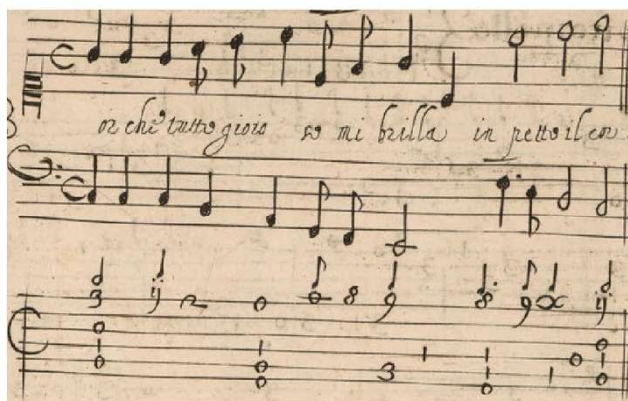 or che tutto gioio so mi brilla in petto il cor